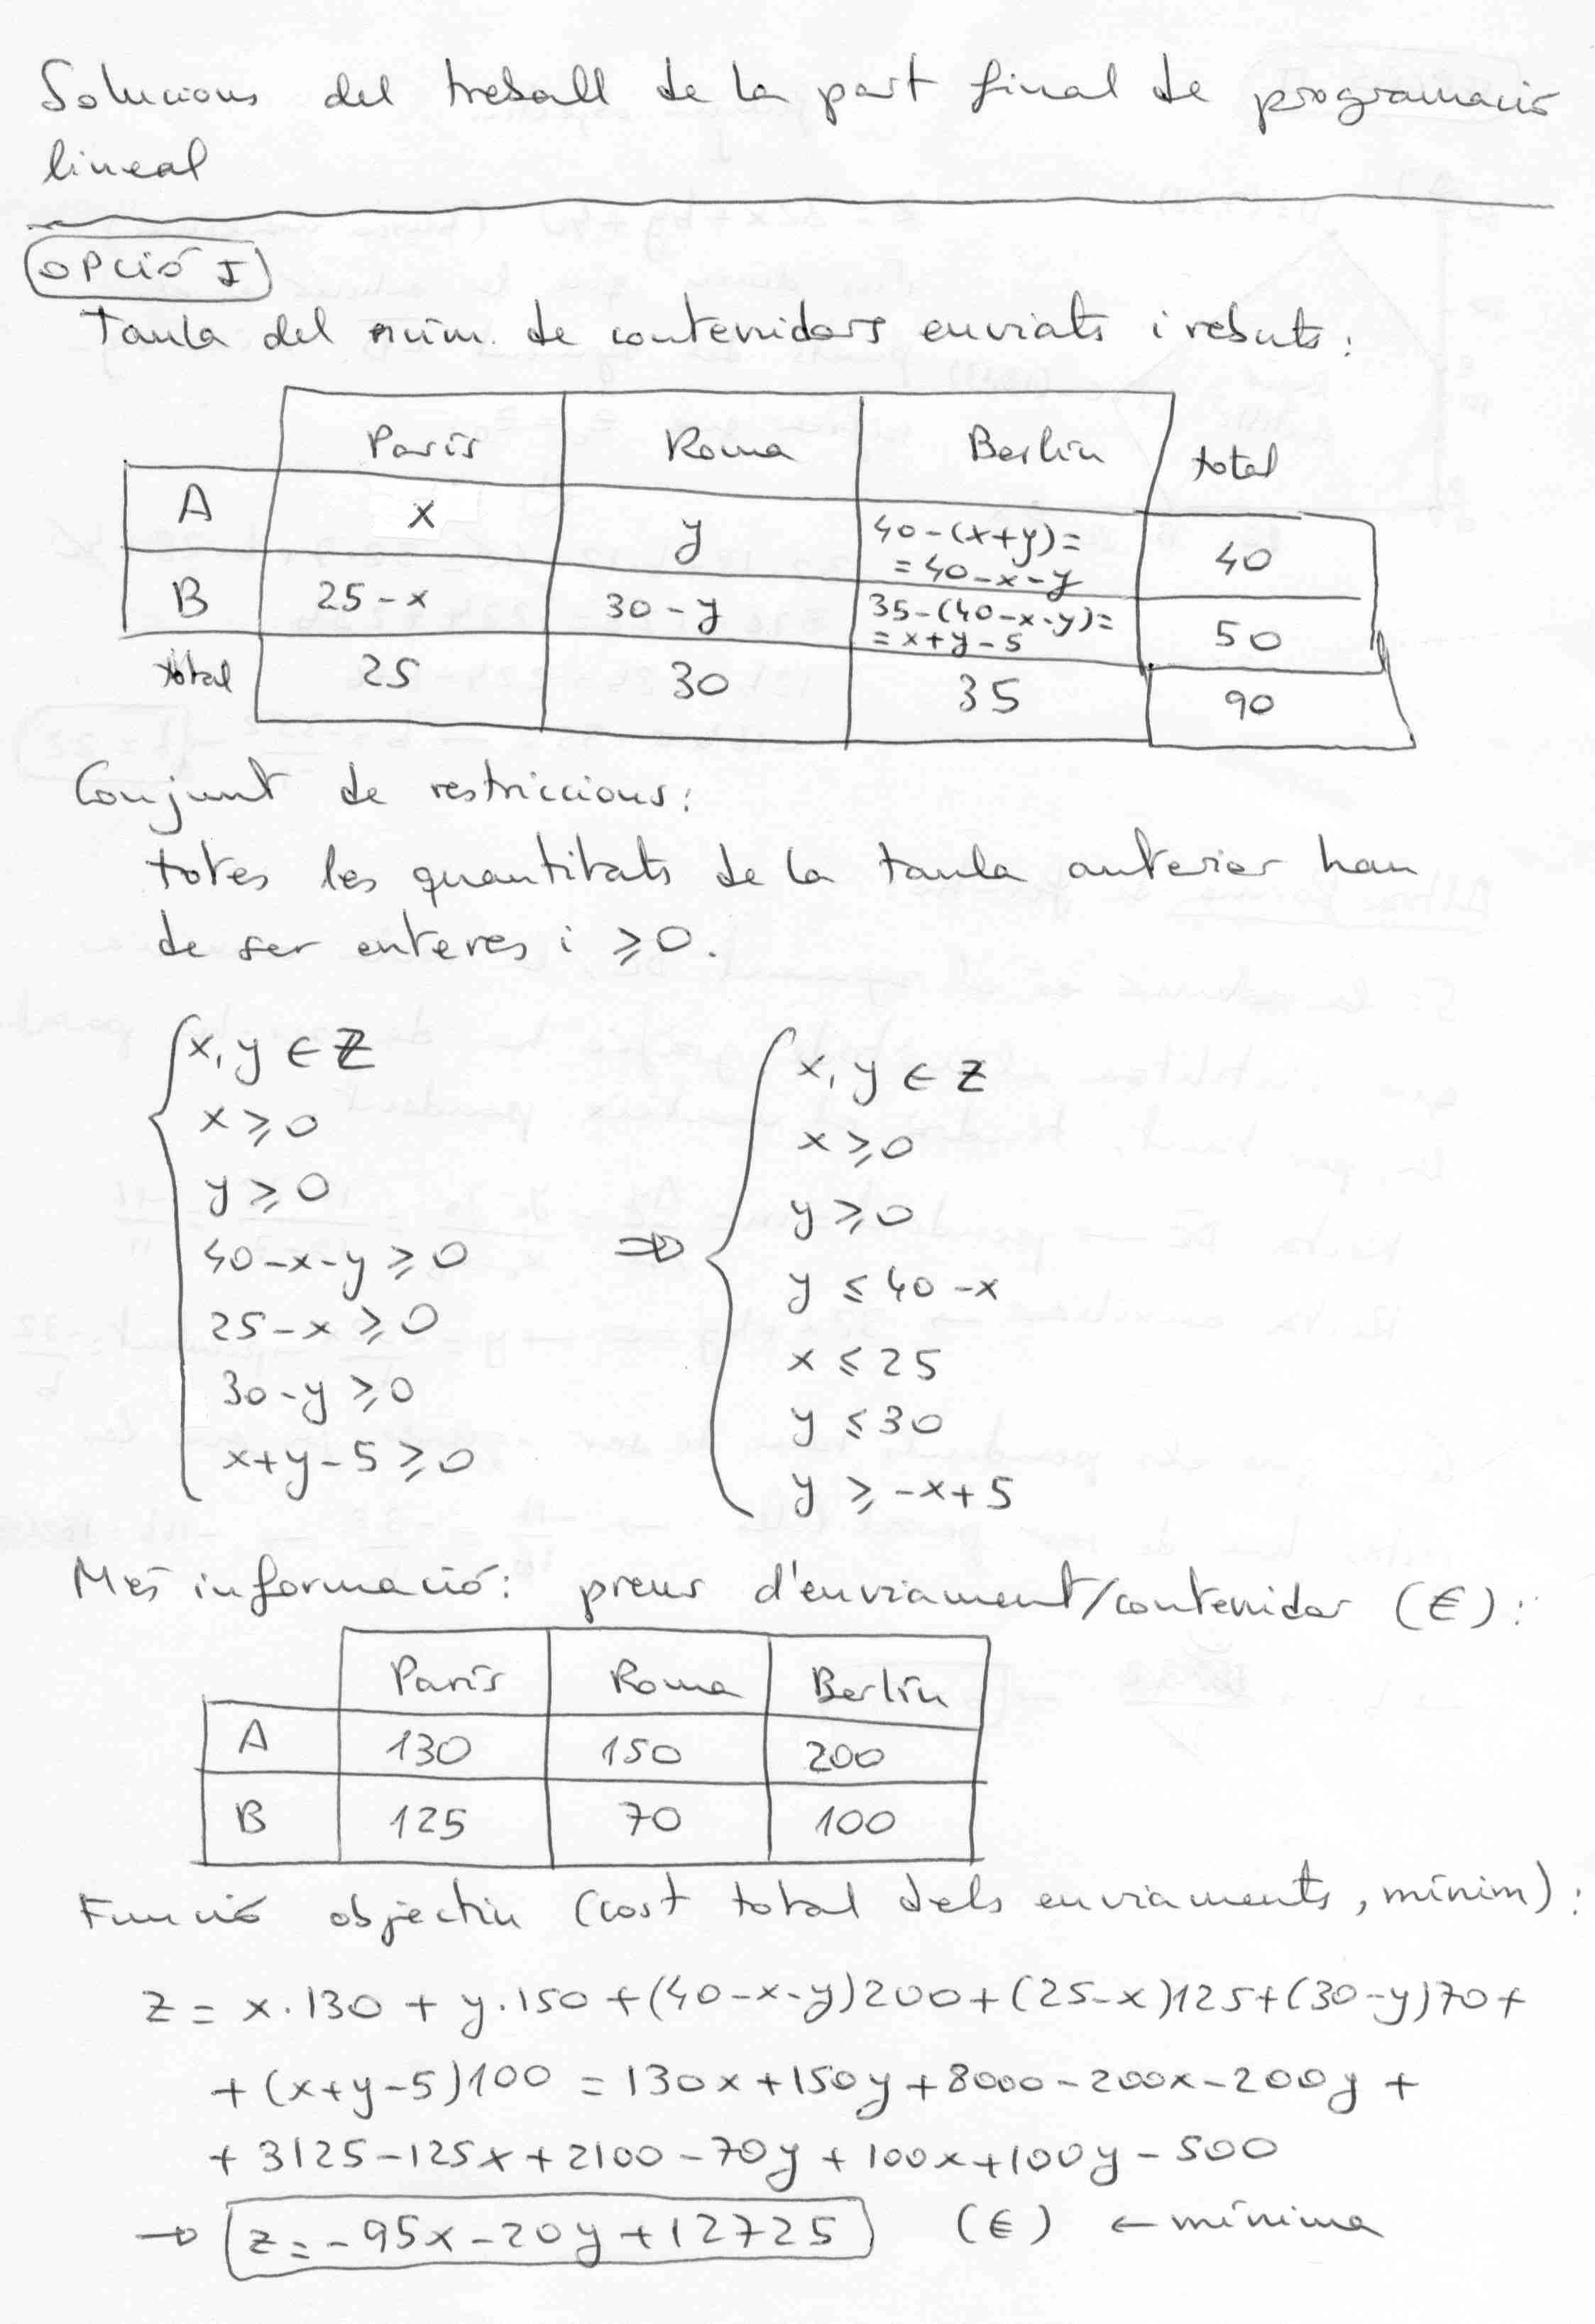 Solucions del treball de la part final de programació
lineal
OPCIÓ I
Taula del núm. de contenidors enviats i rebuts:
París Roma Berlín total
A x y 40-(x+y)= 40
= 40-x-y
B 25-x 30-y 35-(40-x-y)= 50
= x+y-5
total 25 30 35 90
Conjunt de restriccions:
totes les quantitats de la taula anterior han
de ser enteres i ≥0.
x, y ∈ Z
x ≥ 0
y ≥ 0
40-x-y ≥ 0
25-x ≥ 0
30-y ≥ 0
x+y-5 ≥ 0
⇒
x, y ∈ Z
x ≥ 0
y ≥ 0
y ≤ 40-x
x ≤ 25
y ≤ 30
y ≥ -x+5
Més informació: preus d'enviament/contenidor (€):
París Roma Berlín
A 130 150 200
B 125 70 100
Funció objectiu (cost total dels enviaments, mínim):
z = x·130 + y·150 + (40-x-y)200 + (25-x)125 + (30-y)70 +
+ (x+y-5)100 = 130x + 150y + 8000 - 200x - 200y +
+ 3125 - 125x + 2100 - 70y + 100x + 100y - 500
→ z = -95x - 20y + 12725 (€) ← mínima